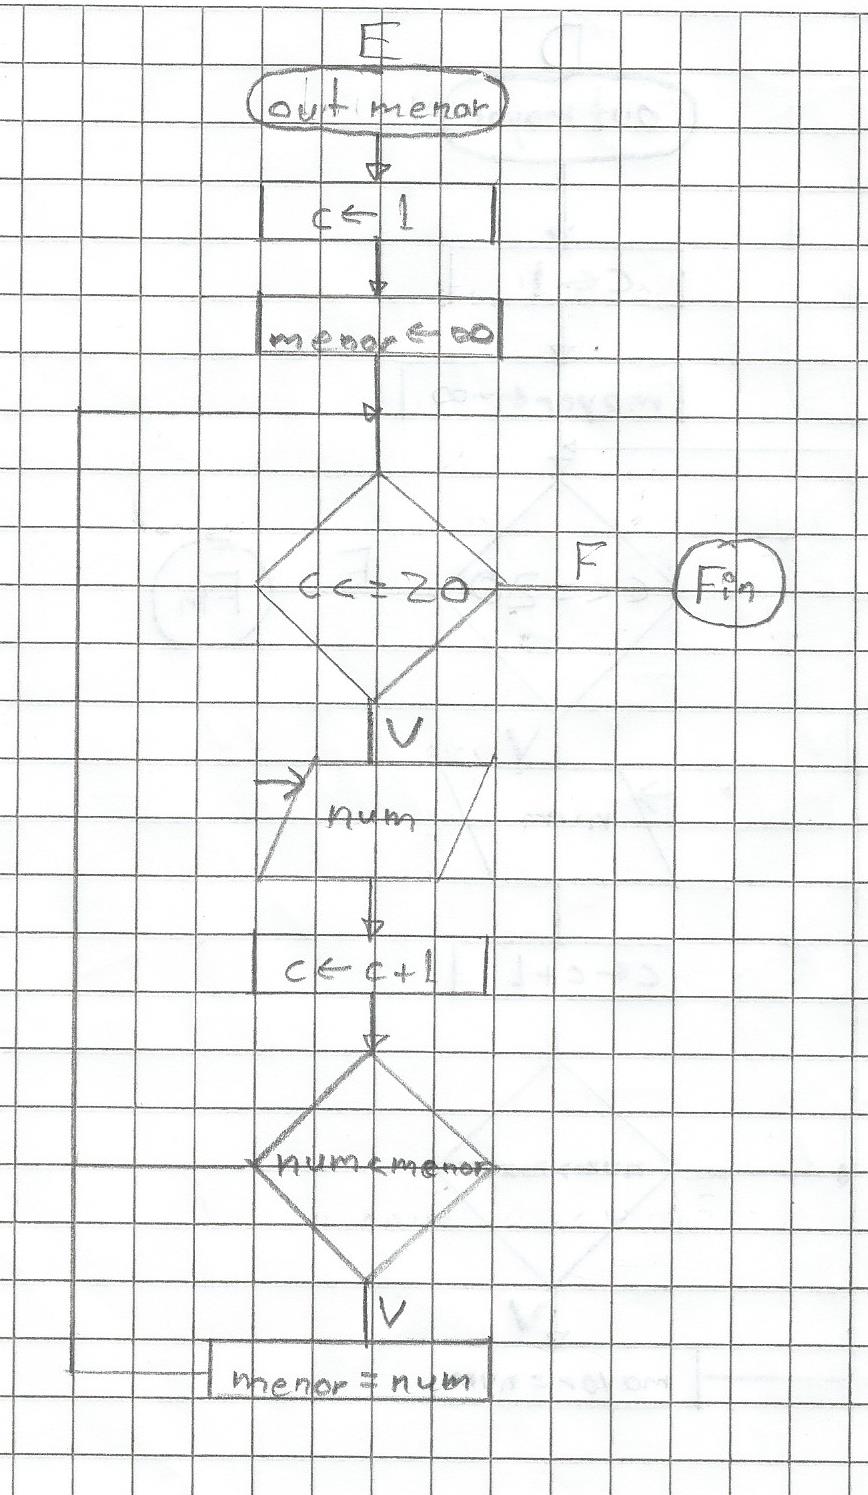 E
out menor
c ← 1
menor ← ∞
c <= 20
F
Fin
V
num
c ← c + 1
num < menor
V
menor = num